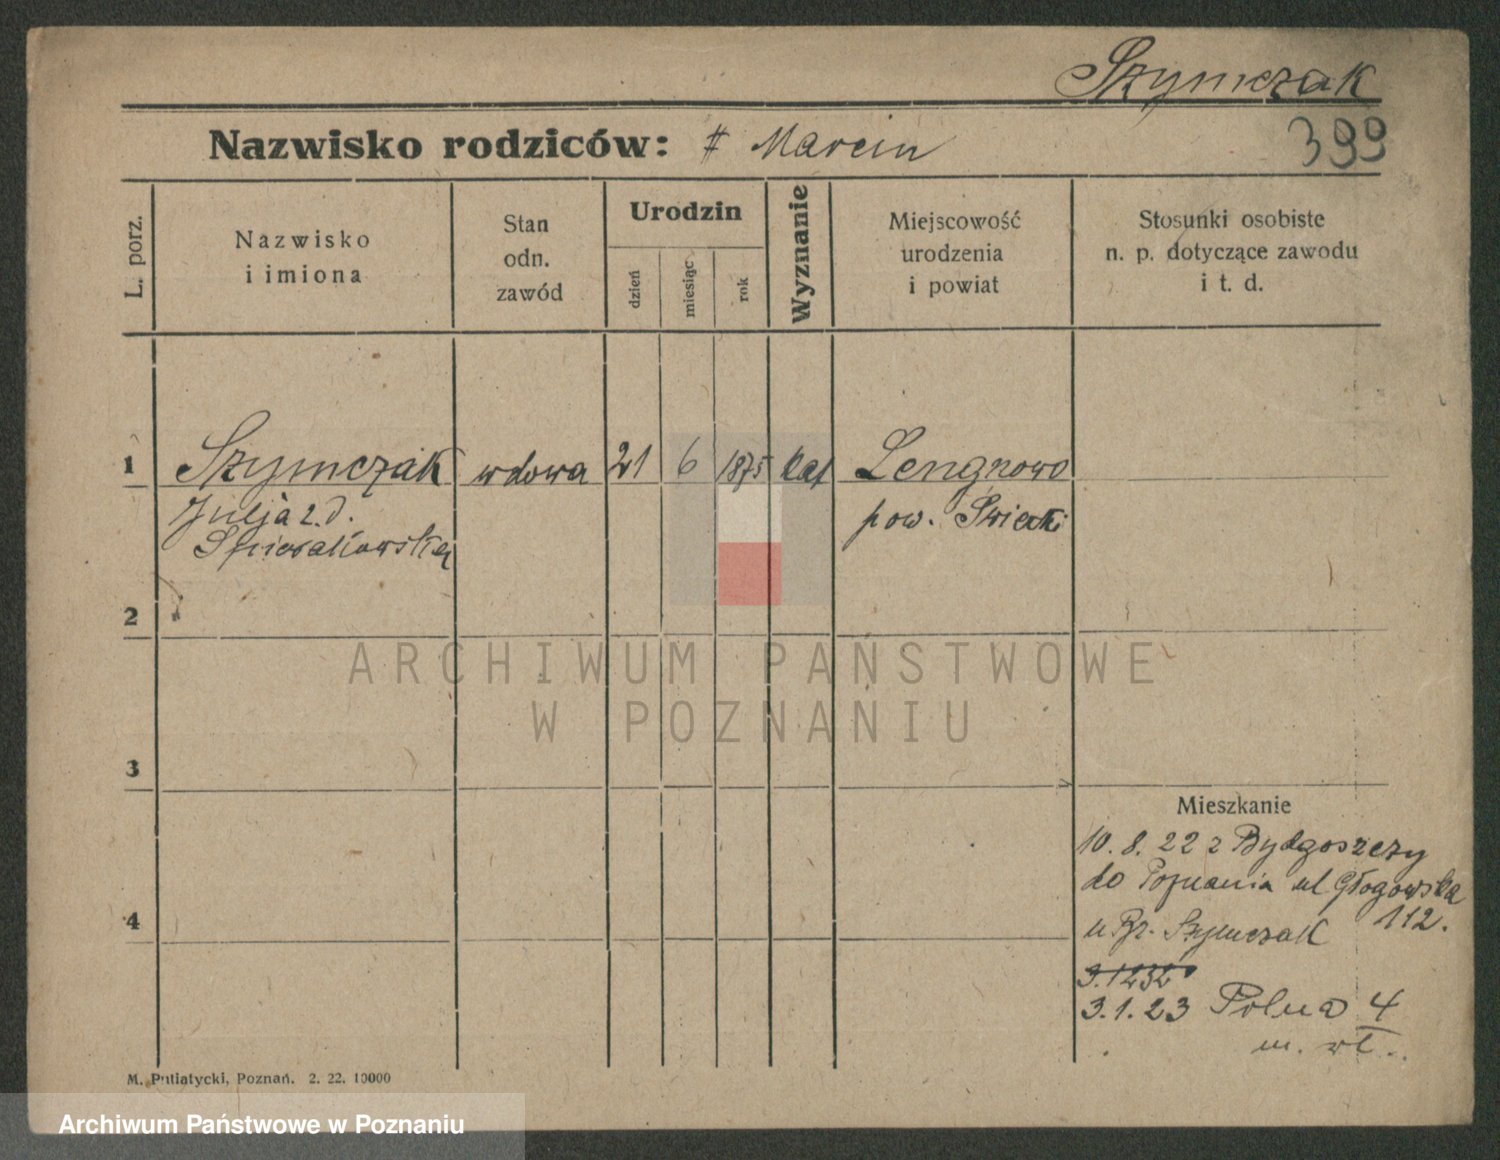 Szymczak
399
Nazwisko rodziców: # Marcin
L. porz.
Nazwisko
i imiona
Stan
odn.
zawód
Urodzin
dzień
miesiąc
rok
Wyznanie
Miejscowość
urodzenia
i powiat
Stosunki osobiste
n. p. dotyczące zawodu
i t. d.
1 Szymczak wdowa 21 6 1875 kat Lengnowo
Julja z. d. pow. Świecki
2
3
4
Mieszkanie
10. 8. 22 z Bydgoszczy
do Poznania ul Głogowska
112.
u Br. Szymczak
3.1.23 Polna 4
M. Putiatycki, Poznań. 2. 22. 10000
ARCHIWUM PAŃSTWOWE
W POZNANIU
Archiwum Państwowe w Poznaniu